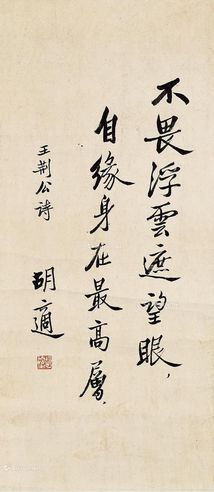 不畏浮雲遮望眼，
自緣身在最高層．
王荆公詩
胡適